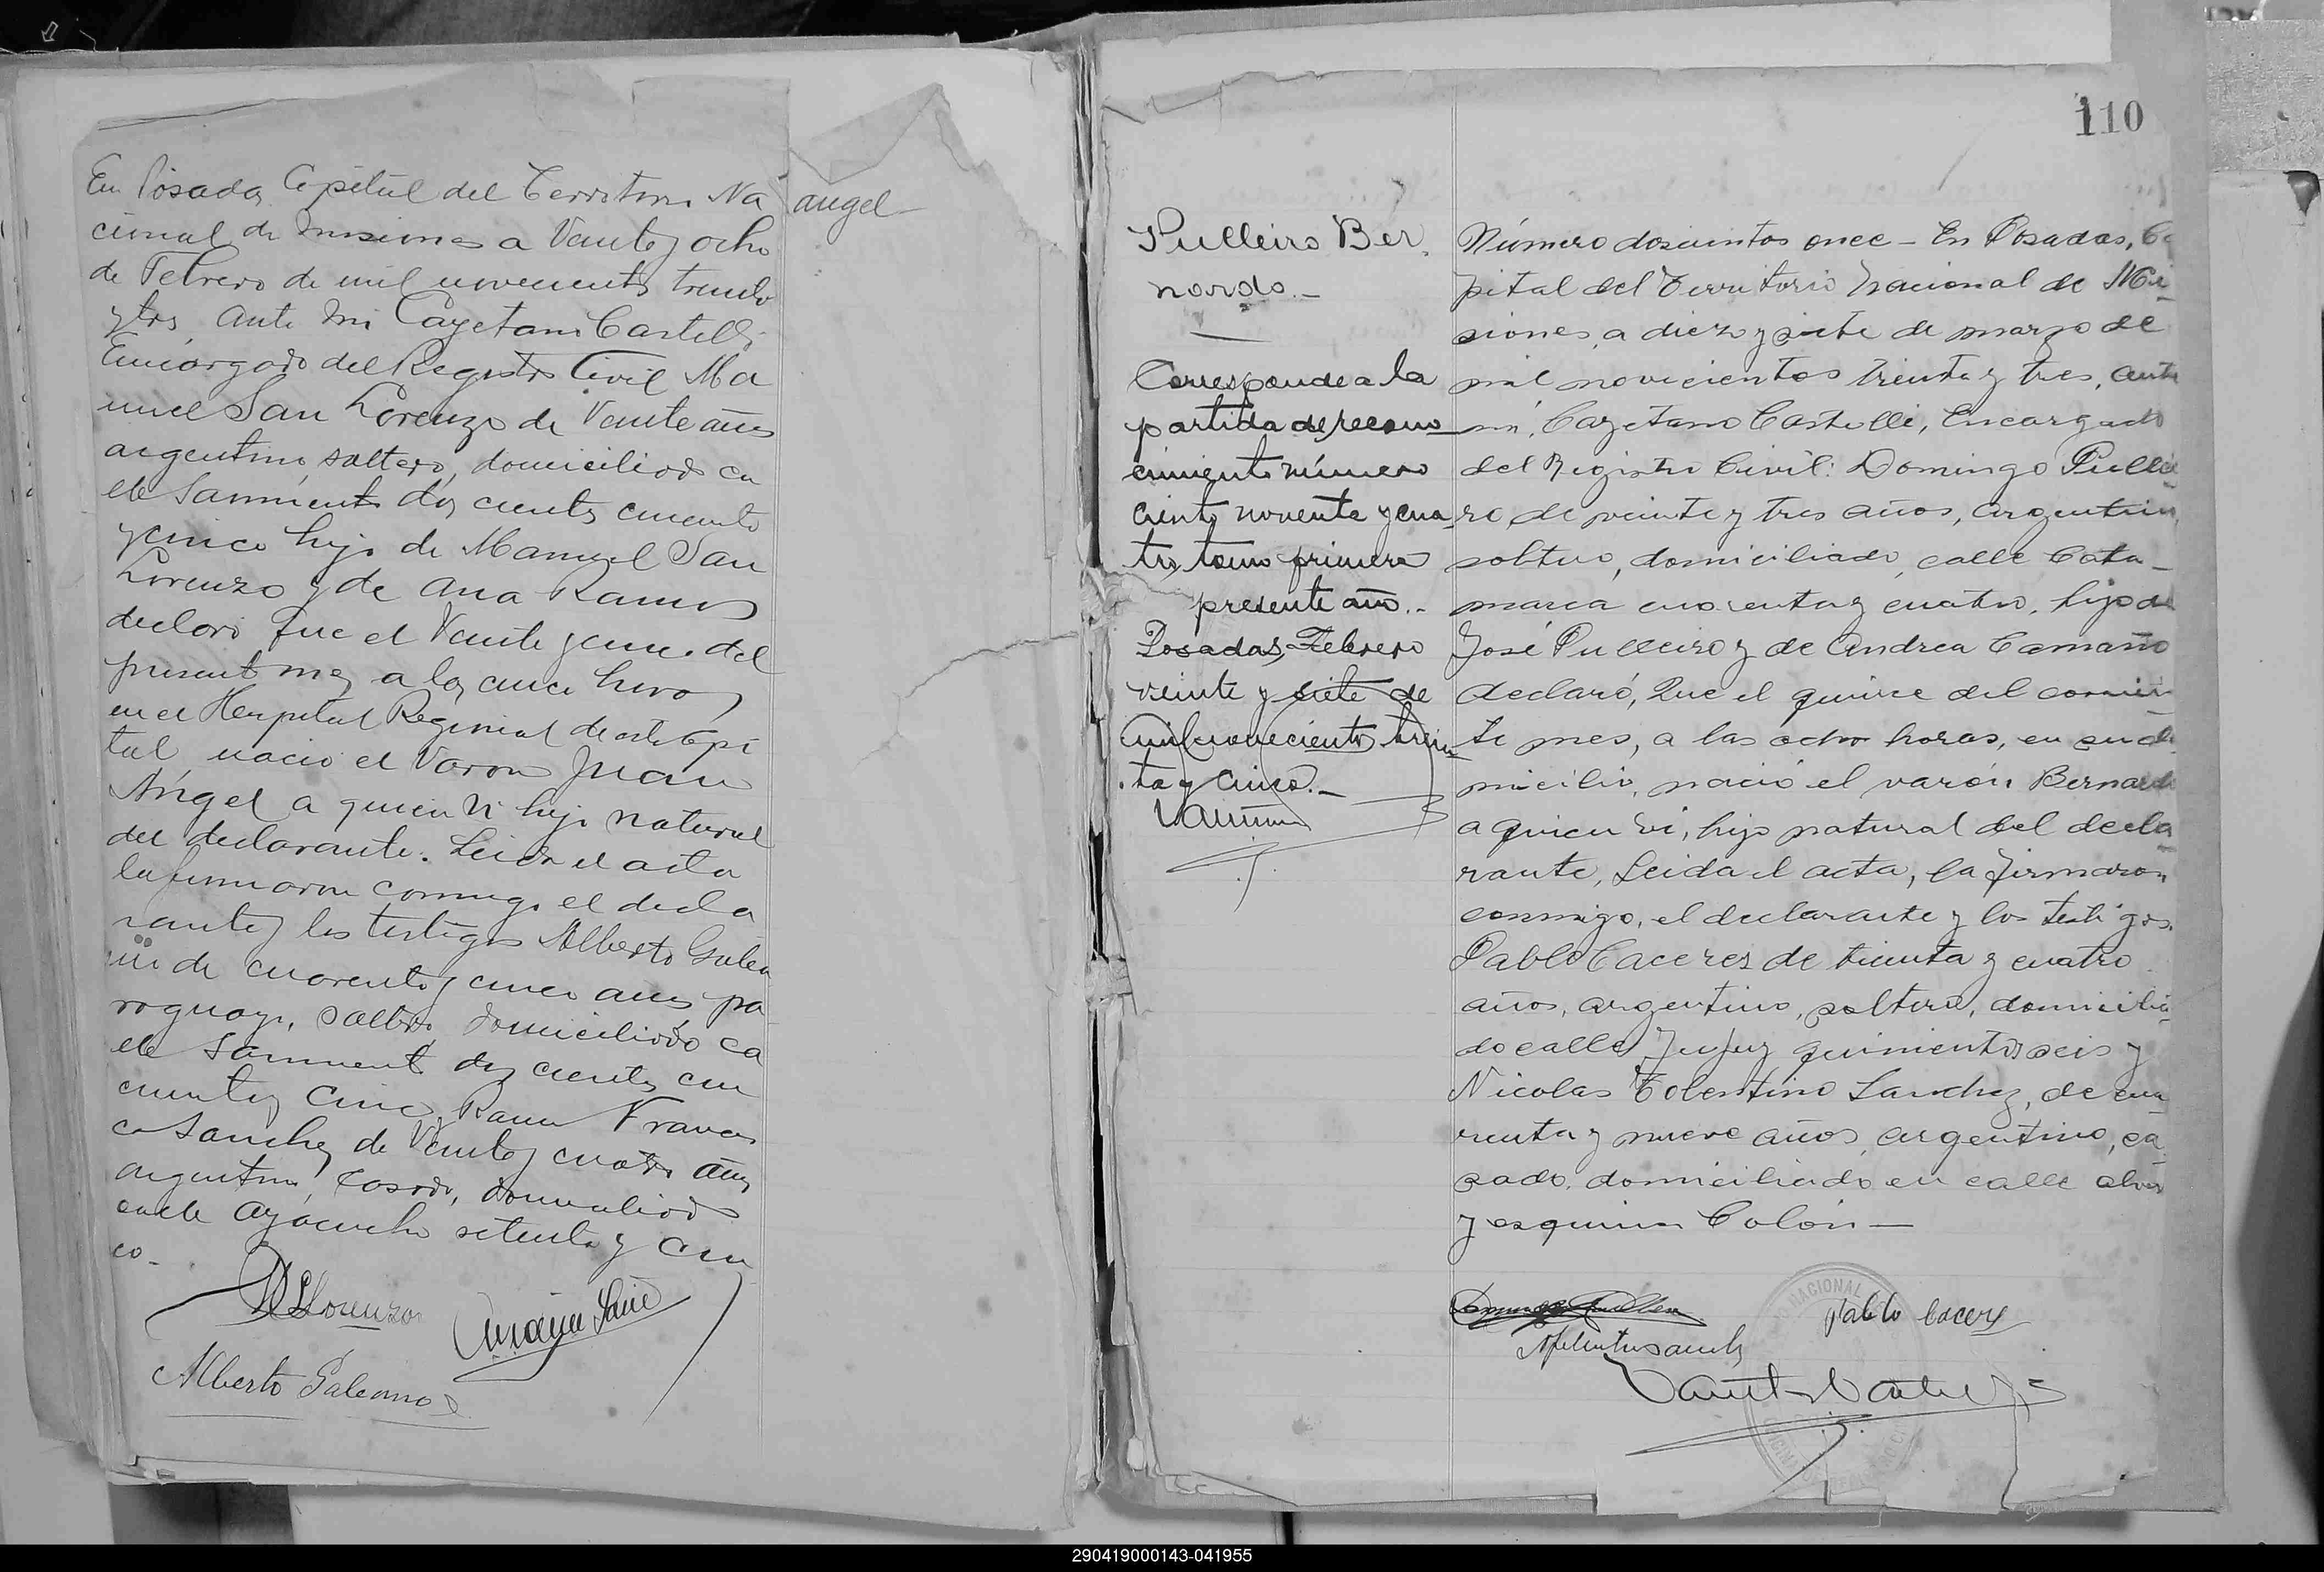 En Posadas Capital del Territorio Na
cional de Misiones a Veinte y ocho
de Febrero de mil novecientos treinta
y tres, ante mi Cayetano Castelli
Encargado del Registro Civil Ma
nuel San Lorenzo de Veinte años
argentino, soltero, domiciliado ca
lle Sarmiento dos cientos cincuenta
y cinco hijo de Manuel San
Lorenzo y de Ana Ramos
declaró que el Veinte y cinco del
presente mes a las cinco horas
en el Hospital Regional de esta Capi
tal nació el Varon Juan
Ángel a quien vi hijo natural
del declarante. Leida el acta
la firmaron conmigo el decla
rante y los testigos Alberto Galea
no de cuarenta y cinco años pa
raguayo, soltero, domiciliado ca
lle Sarmiento dos cientos cin
cuenta y cinco y Ramon Francis
co Sanchez de Veinte y cuatro años
argentino, casado, domiciliado
calle Ayacucho setenta y cin
co.
angel
MSLorenzo
Alberto Galeano
110
Pulleiro Ber
nardo.-
Corresponde a la
partida de recono
cimiento número
ciento noventa y cua-
tro, tomo primero
presente año.-
Posadas, Febrero
veinte y siete de
mil novecientos trein
ta y cinco.-
Número doscientos once - En Posadas, Ca
pital del Territorio Nacional de Mi-
siones, a diez y siete de marzo de
mil novecientos treinta y tres, ante
mi, Cayetano Castelli, Encargado
del Registro Civil: Domingo Pullei
ro, de veinte y tres años, argentino,
soltero, domiciliado, calle Cata-
marca cuarenta y cuatro, hijo de
José Pulleiro y de Andrea Camaño
declaró, Que el quince del corrien-
te mes, a las ocho horas, en su do
micilio, nació el varón Bernardo
a quien vi, hijo natural del decla
rante, Leida el acta, la firmaron
conmigo, el declarante y los testigos.
Pablo Caceres de treinta y cuatro
años, argentino, soltero, domicilia
do calle Jujuy quinientos seis y
Nicolas Tolentino Sanchez, de cua
renta y nueve años, argentino, ca
sado, domiciliado en calle
y esquina Colón -
Pablo Caceres
290419000143-041955